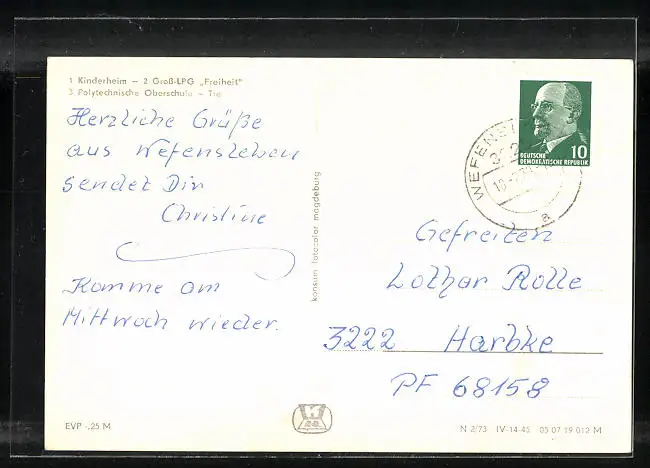 1 Kinderheim – 2 Groß-LPG „Freiheit"
3 Polytechnische Oberschule –
Herzliche Grüße
aus Wefensleben
sendet Dir
Christine
Komme am
Mittwoch wieder.
EVP -,25 M
konsum fotocolor magdeburg
10
DEUTSCHE
DEMOKRATISCHE REPUBLIK
WEFENS
a
Gefreiten
Lothar Rolle
3222 Harbke
PF 68158
K
N 2/73 IV-14-45 05 07 19 012 M